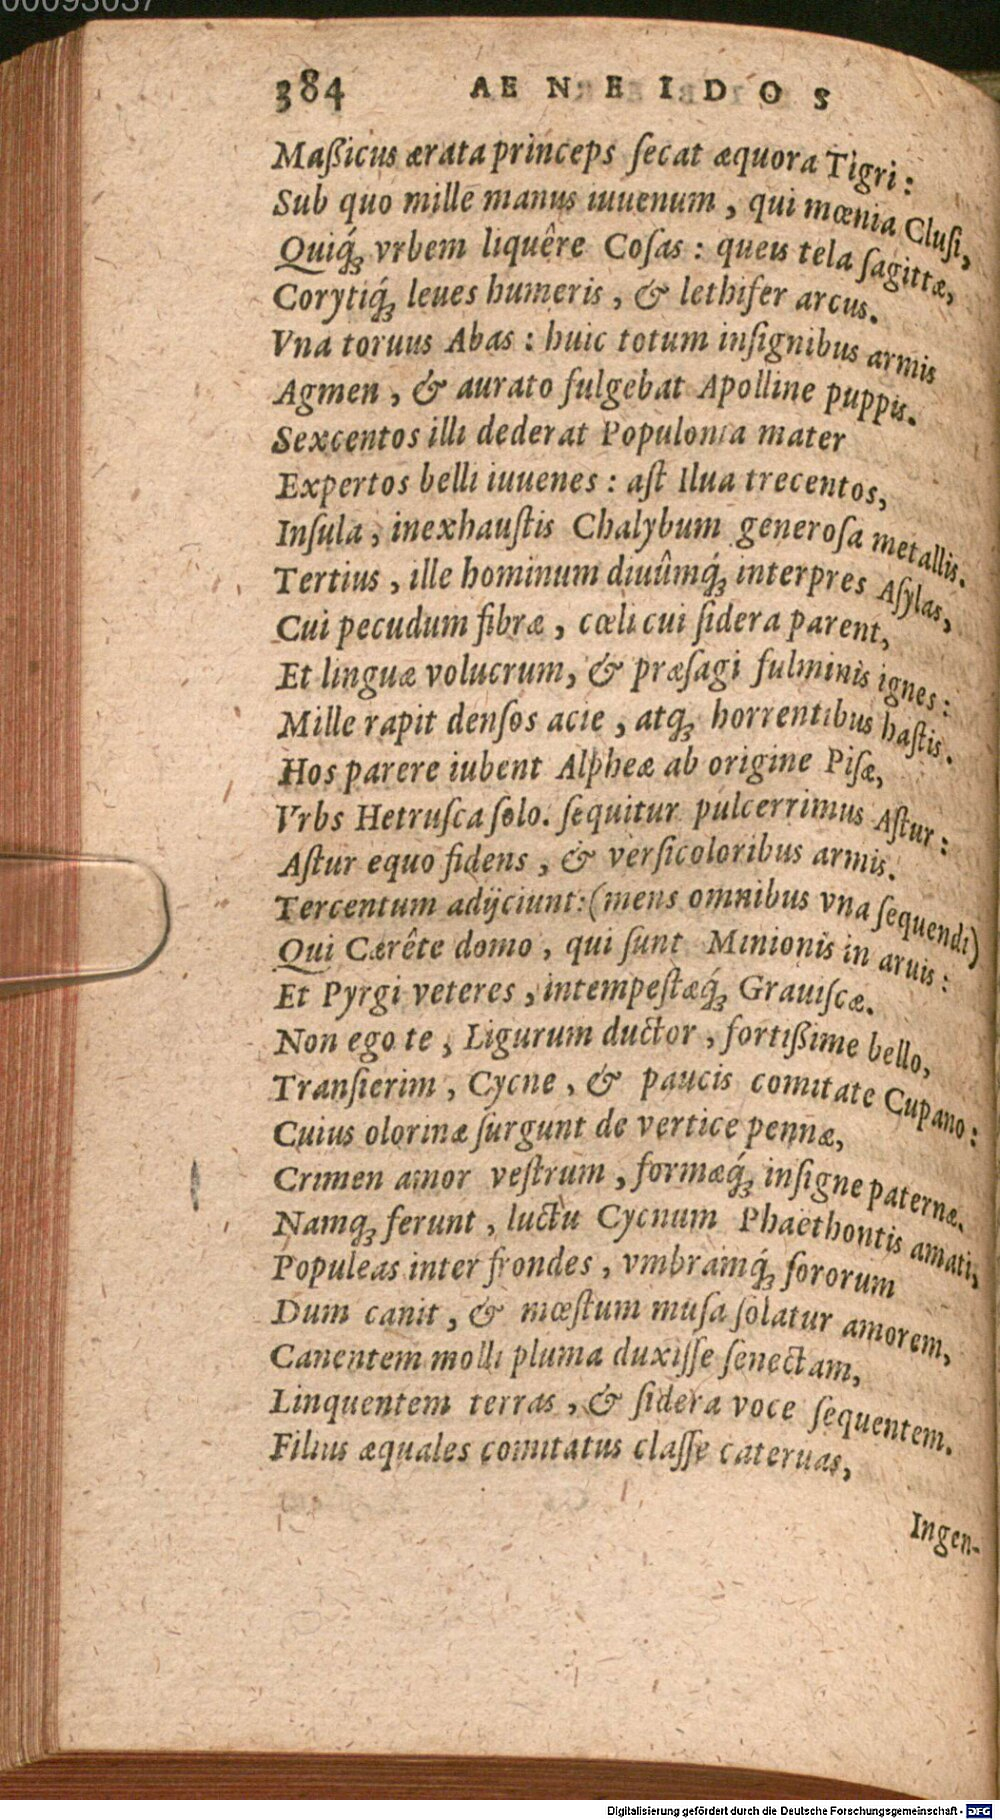 00093037
384 AENEIDOS
Maßicus ærata princeps ſecat æquora Tigri:
Sub quo mille manus iuuenum, qui mœnia Cluſi,
Quiq́ꝫ vrbem liquêre Coſas: queis tela ſagittæ,
Corytiq́ꝫ leues humeris, & lethifer arcus.
Vna toruus Abas: huic totum inſignibus armis
Agmen, & aurato fulgebat Apolline puppis.
Sexcentos illi dederat Populonia mater
Expertos belli iuuenes: aſt Ilua trecentos,
Inſula, inexhauſtis Chalybum generoſa metallis.
Tertius, ille hominum diuûmq́ꝫ interpres Aſylas,
Cui pecudum fibræ, cœli cui ſidera parent,
Et linguæ volucrum, & præſagi fulminis ignes:
Mille rapit denſos acie, atqꝫ horrentibus haſtis.
Hos parere iubent Alpheæ ab origine Piſæ,
Vrbs Hetruſca ſolo. ſequitur pulcerrimus Aſtur:
Aſtur equo fidens, & verſicoloribus armis.
Tercentum adijciunt: (mens omnibus vna ſequendi)
Qui Cærête domo, qui ſunt Minionis in aruis:
Et Pyrgi veteres, intempeſtæq́ꝫ Grauiſcæ.
Non ego te, Ligurum ductor, fortißime bello,
Tranſierim, Cycne, & paucis comitate Cupano:
Cuius olorinæ ſurgunt de vertice pennæ,
Crimen amor veſtrum, formæq́ꝫ inſigne paternæ.
Namqꝫ ferunt, luctu Cycnum Phaethontis amati,
Populeas inter frondes, vmbramq́ꝫ ſororum
Dum canit, & mœſtum muſa ſolatur amorem,
Canentem molli pluma duxiſſe ſenectam,
Linquentem terras, & ſidera voce ſequentem.
Filius æquales comitatus claſſe cateruas,
Ingen-
Digitalisierung gefördert durch die Deutsche Forschungsgemeinschaft - DFG